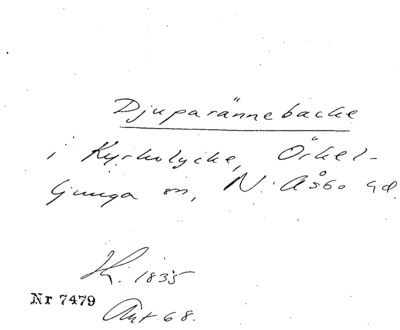 Djuparännebacke
i Kyrkolycke, Örkel-
ljunga sn, N. Åsbo hd.
K. 1835
Nr 7479
Ant 68.